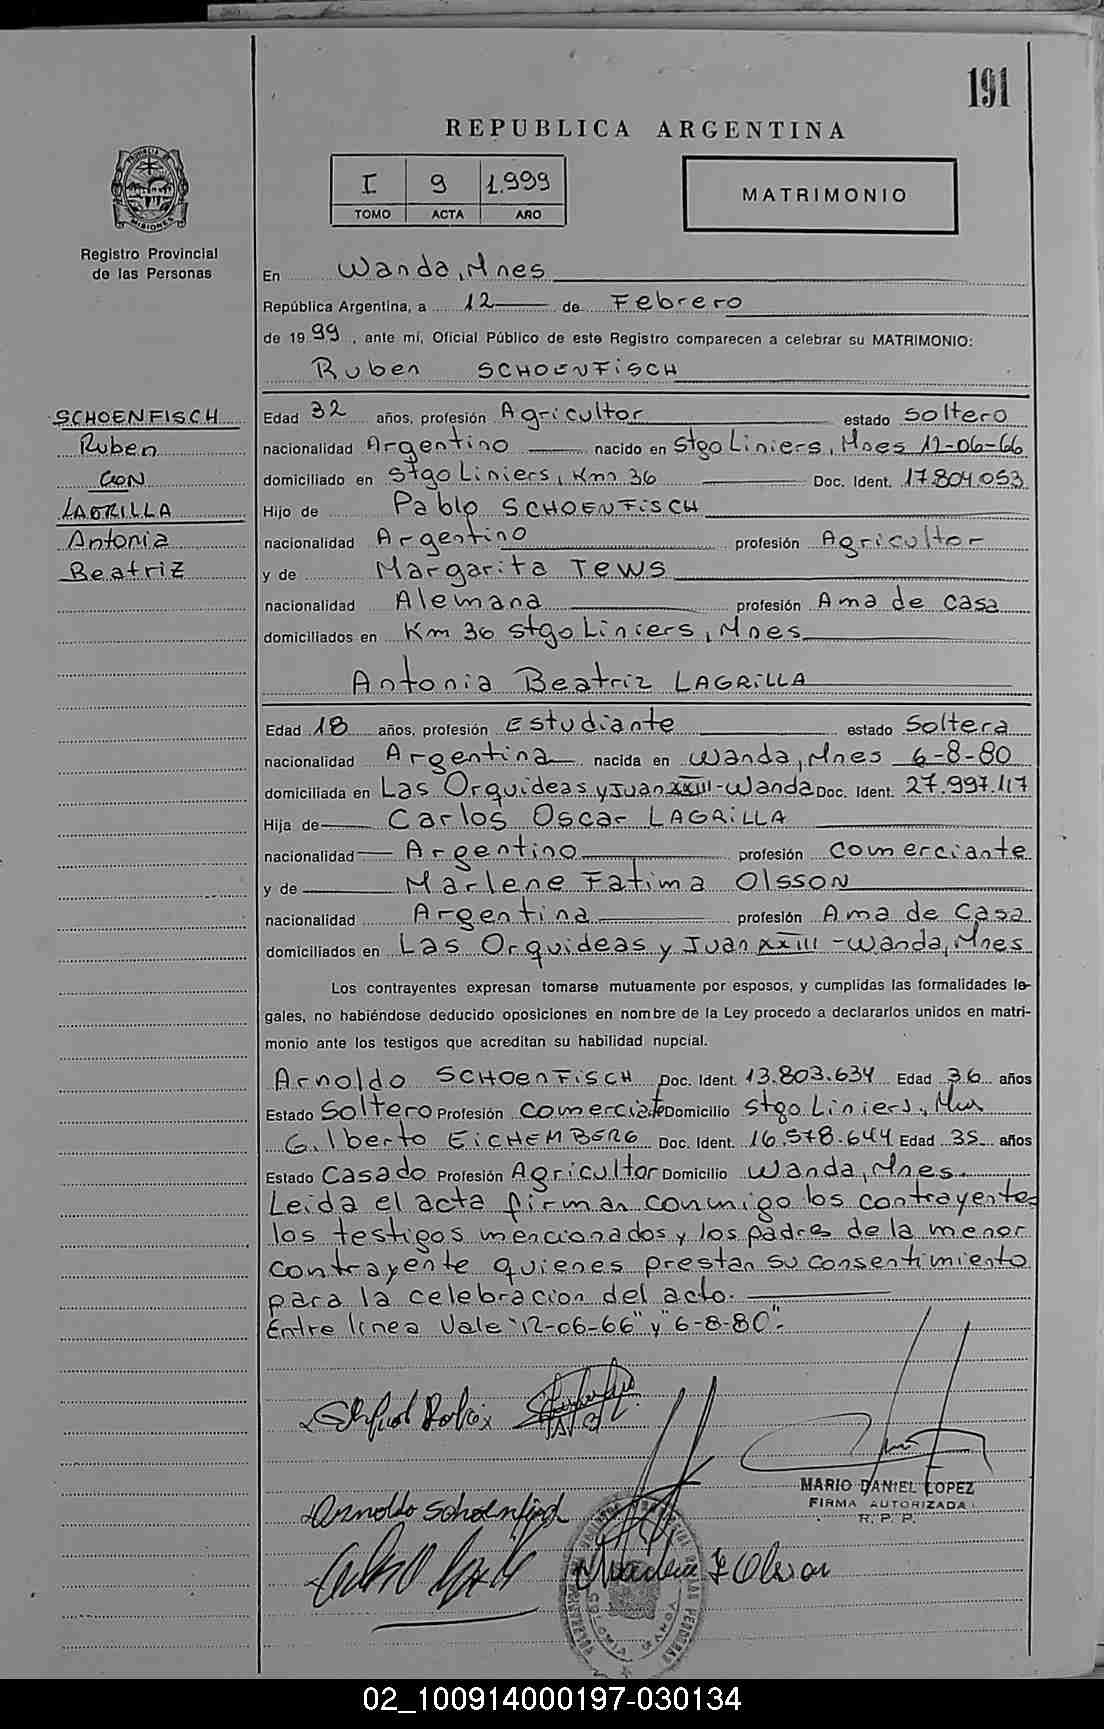 191
REPUBLICA ARGENTINA
I 9 1.999
TOMO ACTA AÑO
MATRIMONIO
PROVINCIA DE MISIONES
Registro Provincial
de las Personas
En Wanda, Mnes
República Argentina, a 12 de Febrero
de 1999, ante mí, Oficial Público de este Registro comparecen a celebrar su MATRIMONIO:
Ruben SCHOENFISCH
SCHOENFISCH
Ruben
CON
LAGRILLA
Antonia
Beatriz
Edad 32 años, profesión Agricultor estado Soltero
nacionalidad Argentino nacido en Stgo Liniers, Mnes 12-06-66
domiciliado en Stgo Liniers, Km 36 Doc. Ident. 17.804.053
Hijo de Pablo SCHOENFISCH
nacionalidad Argentino profesión Agricultor
y de Margarita TEWS
nacionalidad Alemana profesión Ama de casa
domiciliados en Km 36 Stgo Liniers, Mnes
Antonia Beatriz LAGRILLA
Edad 18 años, profesión Estudiante estado Soltera
nacionalidad Argentina nacida en Wanda, Mnes 6-8-80
domiciliada en Las Orquideas y Juan XXIII-Wanda Doc. Ident. 27.997.117
Hija de Carlos Oscar LAGRILLA
nacionalidad Argentino profesión Comerciante
y de Marlene Fatima OLSSON
nacionalidad Argentina profesión Ama de Casa
domiciliados en Las Orquideas y Juan XXIII-Wanda, Mnes
Los contrayentes expresan tomarse mutuamente por esposos, y cumplidas las formalidades le-
gales, no habiéndose deducido oposiciones en nombre de la Ley procedo a declararlos unidos en matri-
monio ante los testigos que acreditan su habilidad nupcial.
Arnoldo SCHOENFISCH Doc. Ident. 13.803.634 Edad 36 años
Estado Soltero Profesión Comerciante Domicilio Stgo Liniers, Mnes
Gilberto EICHEMBERG Doc. Ident. 16.578.644 Edad 35 años
Estado Casado Profesión Agricultor Domicilio Wanda, Mnes.
Leida el acta firman conmigo los contrayentes
los testigos mencionados y los padres de la menor
contrayente quienes prestan su consentimiento
para la celebracion del acto.
Entre linea Vale "12-06-66" y "6-8-80".
MARIO DANIEL LOPEZ
FIRMA AUTORIZADA
R. P. P.
Arnoldo Schoenfisch
02_100914000197-030134